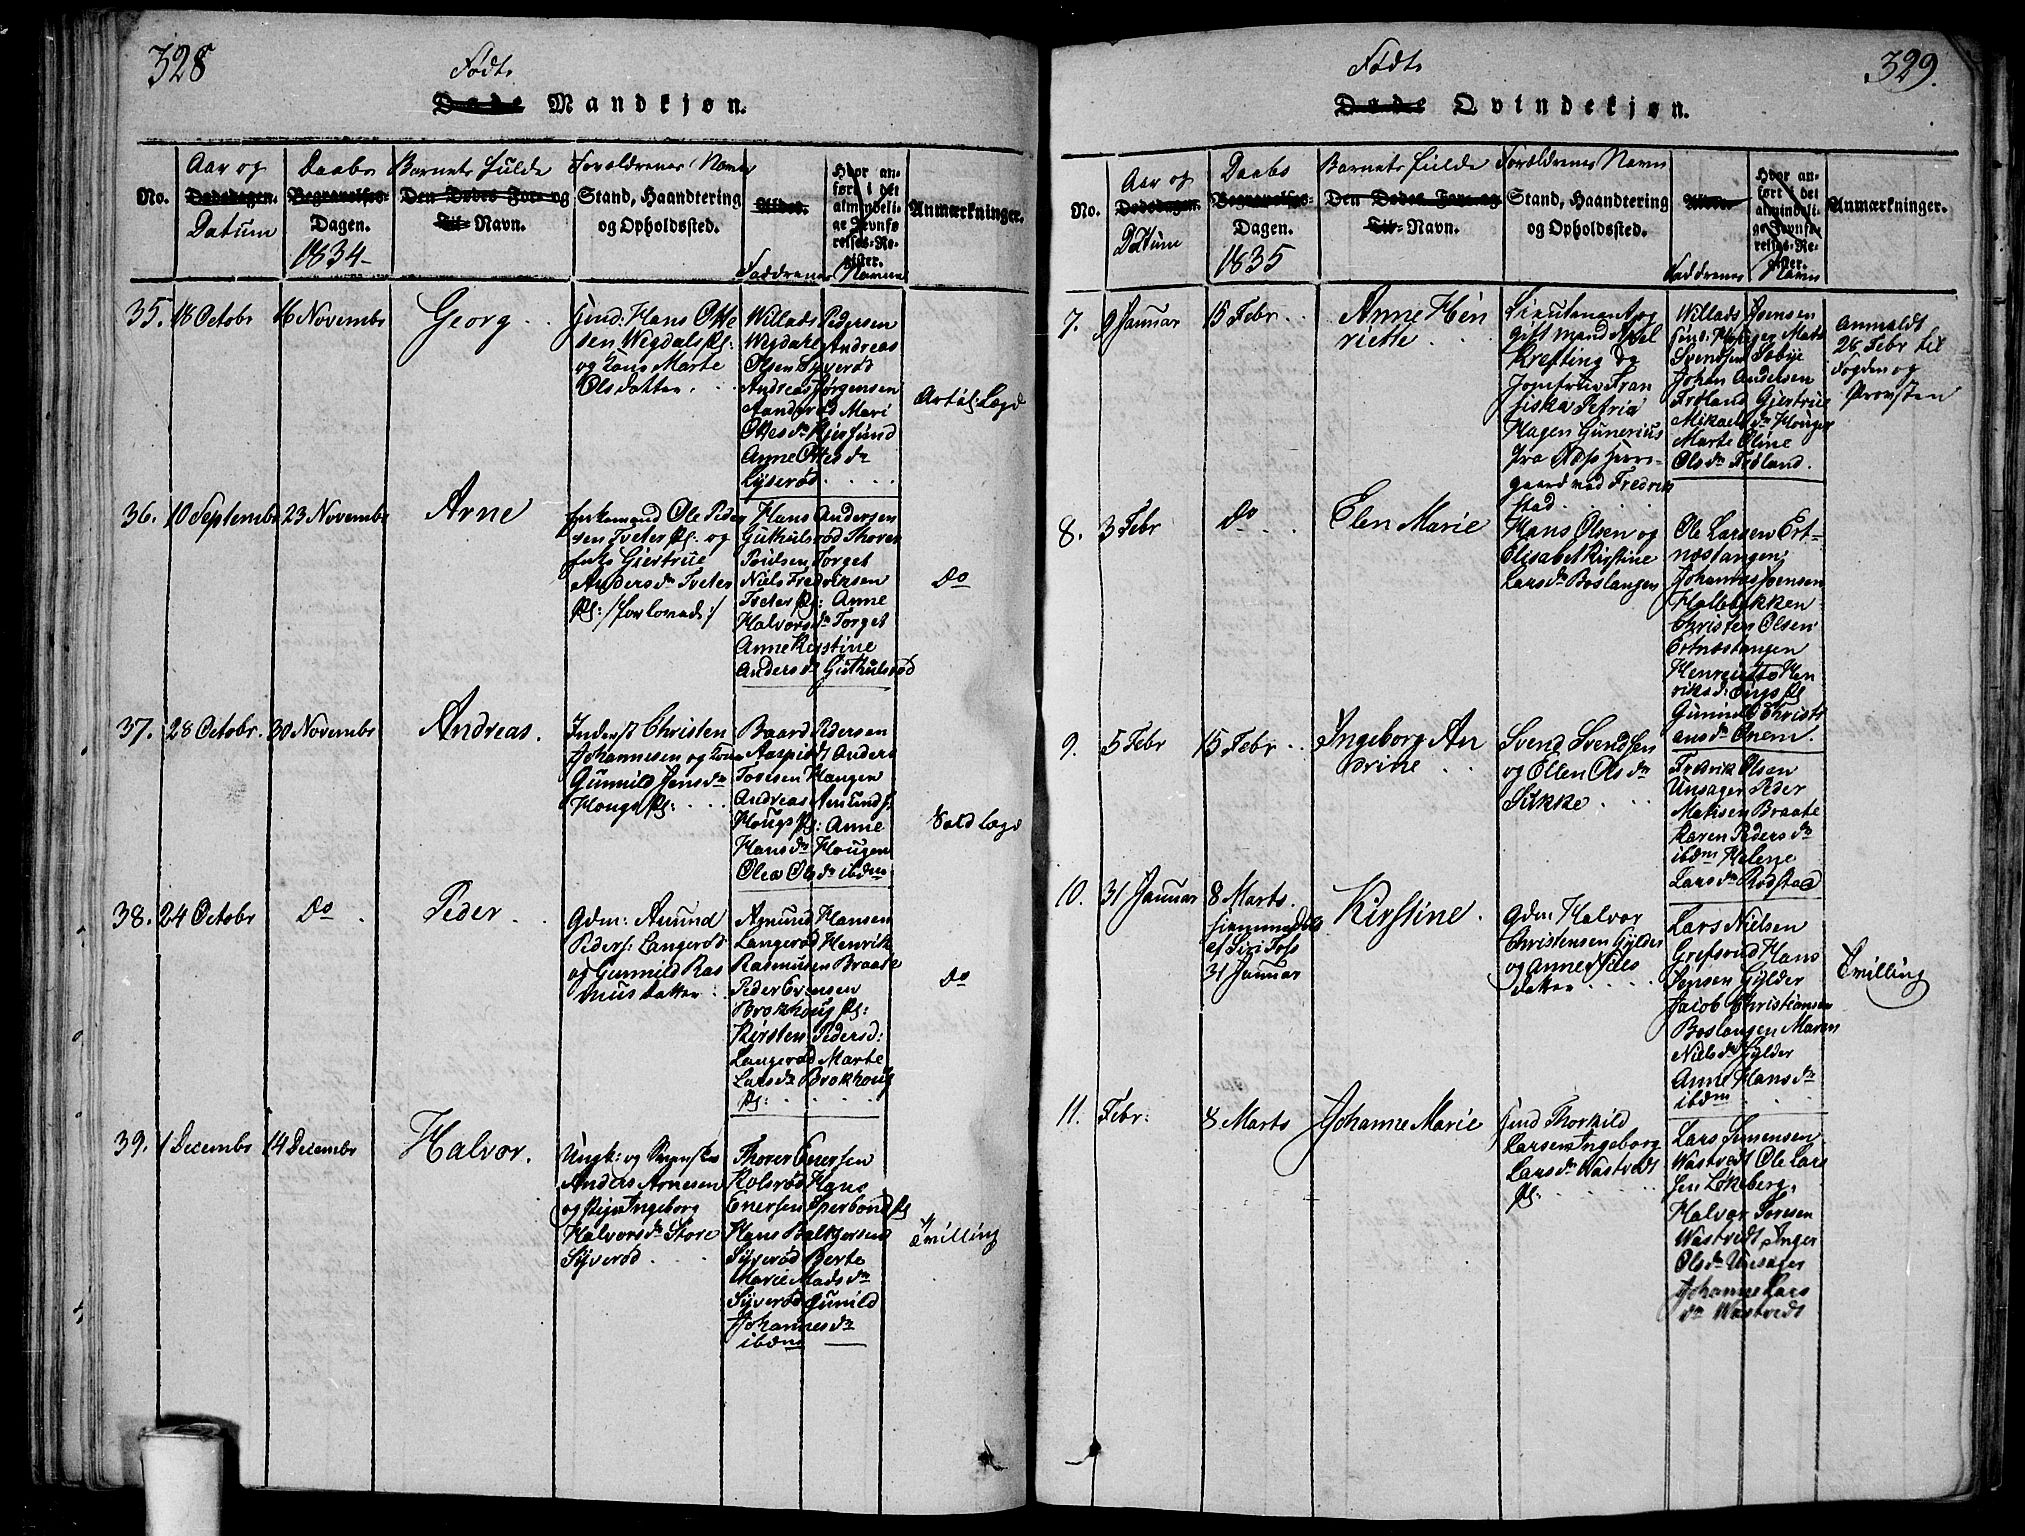 328
Født
Døde Mandkjøn.
No.
Aar og
Dødsdagen.
Datum
Daabs
Begravelses-
Dagen.
1834
Barnets fulde
Den Dødes For- og
Til- Navn.
Forældrenes Navn
Stand, Haandtering
og Opholdssted.
Alder.
Hvor an-
ført i det
almindeli-
ge Jevnfø-
relses-Re-
gister.
Faddrenes Navne
Anmærkninger.
35. 18 Octobr 16 Novembr Georg
Hans Otte
sen Wigdals Pl:
og Marte
Olsdatter.
Willads Pedersen
Wigdahl Andreas
Olsen Lyserød
Andreas Jørgensen
Mari
Ottesdr
Anne Ottesdr
Lyserød
36. 10 Septembr 23 Novembr Arne
Enkemand Ole Peder
sen Tveter Pl: og
Enke Giertrue
Andersdr Tveter
Pl: /forlovede/
Hans Andersen
Guthulsrød Thorer
Poulsen Torget
Niels Fredriksen
Tveter Pl: Anne
Halvorsdr Torget
Anne Kirstine
Andersdr Guthulsrød
Do
37. 28 Octobr. 30 Novembr Andreas.
Inderst Christen
Johannesen og Kone
Gunnild Jensdr
Hougs Pl:
Baard Pedersen
Anders
Tostesen Haugen
Andreas Amunds.
Hougs Pl: Anne
Hansdr Hougen
Olea Olsdr ibdm
38. 24 Octobr Do Peder
Gdm: Amund
Peders: Langerød
og Gunnild Ras
musdatter
Amund Hansen
Langerød Henrik
Rasmusen Braate
Peder Evensen
Brokhoug Pl:
Kirsten Pedersd:
Langerød Marte
Larsdr Brokhoug
Pl:
Do
39. 1 Decembr 14 Decembr Halvor.
Ungk: og
Anders Arnesen
og Pige Ingeborg
Halvorsdr Store
Syverød
Thorer Enersen
Kolsrød Hans
Enersen Sperbond Pl
Hans Baltzersen
Syverød Berte
Marie Madsdr
Syverød Gunild
Johannesdr
ibdm
Tvilling
329.
Født
Døde Qvindekjøn.
No.
Aar og
Dødsdagen.
Datum
Daabs
Begravelses-
Dagen.
1835
Barnets fulde
Den Dødes For- og
Til- Navn.
Forældrenes Navn
Stand, Haandtering
og Opholdssted.
Alder.
Hvor an-
ført i det
almindeli-
ge Jevnfø-
relses-Re-
gister.
Faddrenes Navn
Anmærkninger.
7. 9 Januar 15 Febr Anne Hen
riette
Lieutenant og
gift mand Axel
Krefting og
Jomfrue Fran
siska Petria
Hagen Gunerius
fra Næs Herre-
gaard ved Fredrik
stad
Willads Svensen
Mads
Svendsen
Johan Andersen
Frøland Giertrue
Mikaelsdr Houger
Marte Oline
Olsdr Frøland.
Anmeldt
28 Febr til
Fogden og
Provsten
8. 3 Febr Do Elen Marie
Hans Olsen og
Elisabet Kirstine
Larsdr Boslangen
Ole Larsen Ert-
næstangen
Johannes Svensen
Hallebakken
Christen Olsen
Ertnæstangen
Henriette Hen
riksd:
Gunnild Christi
ansdr Onem.
9. 5 Febr 15 Febr Ingeborg An
drine
Svend Svendsen
og Ellen Olsdr
Sikke
Fredrik Olsen
Unsager Peder
Matisen Braate
Karen Pedersdr
ibdm Helene
Larsdr Rødstad
10. 31 Januar 8 Marts.
hjemmedøbt
af Siri Tofs
31 Januar
Kirstine.
Gdm: Halvor
Christensen Gylder
og Anne Niels
datter
Lars Nielsen
Grefsrud Hans
Jensen Gylder
Jacob Christiansen
Boslangen Maren
Nielsdr Gylder
Anne Hansdr
ibdm
Tvilling
11. Febr: 8 Marts Johanne Marie
Thorkild
Larsen Ingeborg
Larsdr Wastvedt
Pl:
Lars Simensen
Wastvedt Ole Lars
sen Løkeberg,
Halvor Soresen
Wastvedt Inger
Olsdr Unsager
Johanne Lars
dr Wastvedt